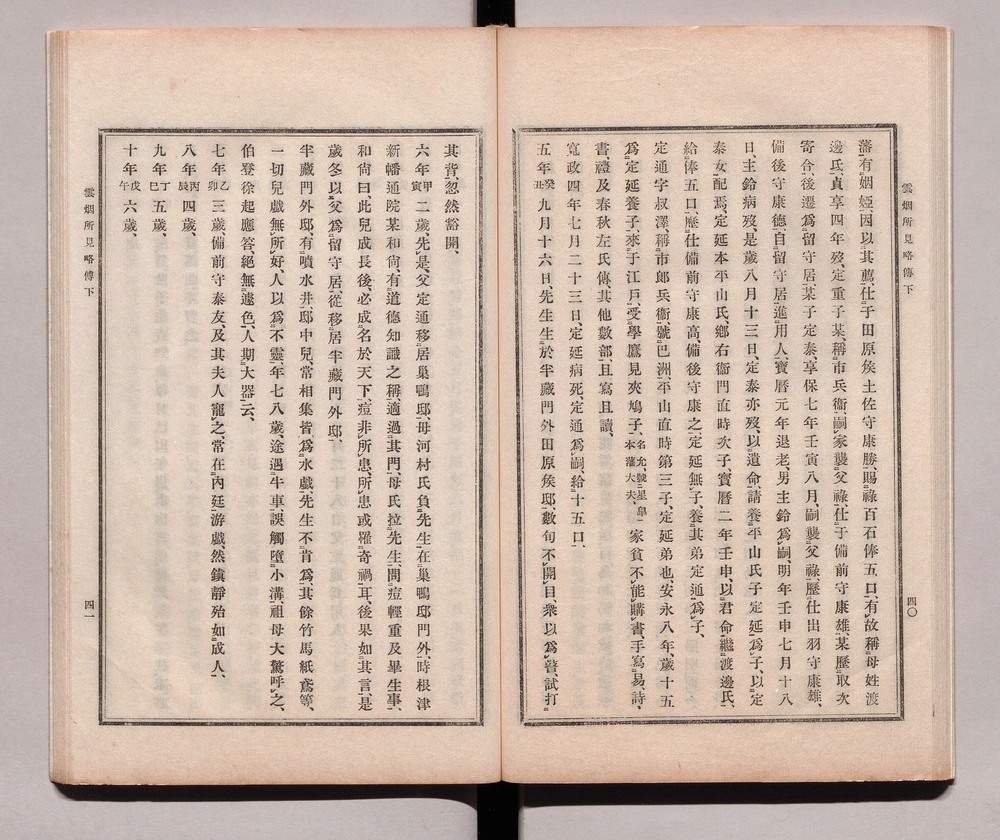 雲烟所見略傳下
四〇
藩有姻婭因以其薦仕于田原矦土佐守康勝賜祿百石俸五口有故稱母姓渡
邊氏貞享四年歿定重子某稱市兵衞嗣家襲父祿仕于備前守康雄某歷取次
寄合後遷爲留守居某子定泰享保七年壬寅八月嗣襲父祿歷仕出羽守康雄
備後守康德自留守居進用人寶曆元年退老男主鈴爲嗣明年壬申七月十八
日主鈴病歿是歲八月十三日定泰亦歿以遺命請養平山氏子定延爲子以定
泰女配焉定延本平山氏鄕右衞門直時次子寶曆二年壬申以君命繼渡邊氏
給俸五口歷仕備前守康高備後守康之定延無子養其弟定通爲子
定通字叔澤稱市郞兵衞號巴洲平山直時第三子定延弟也安永八年歲十五
爲定延養子來于江戶受學鷹見爽鳩子名允號星皐本藩大夫家貧不能購書手寫易詩
書禮及春秋左氏傳其他數部且寫且讀
寬政四年七月二十三日定延病死定通爲嗣給十五口
五年癸丑九月十六日先生生於半藏門外田原矦邸數旬不開目衆以爲瞽試打
其背忽然豁開
六年甲寅二歲先是父定通移居巢鴨邸母河村氏負先生在巢鴨邸門外時根津
新幡通院某和尙有道德知識之稱適過其門母氏拉先生問痘輕重及畢生事
和尙曰此兒成長後必成名於天下痘非所患所患或罹奇禍耳後果如其言是
歲冬以父爲留守居從移居半藏門外邸
半藏門外邸有噴水井邸中兒常相集皆爲水戲先生不肯爲其餘竹馬紙鳶等
一切兒戲無所好人以爲不靈年七八歲途遇牛車誤觸墮小溝祖母大驚呼之
伯登徐起應答絕無遽色人期大器云
七年乙卯三歲備前守泰友及其夫人寵之常在內廷游戲然鎭靜殆如成人
八年丙辰四歲
九年丁巳五歲
十年戊午六歲
雲烟所見略傳下
四一